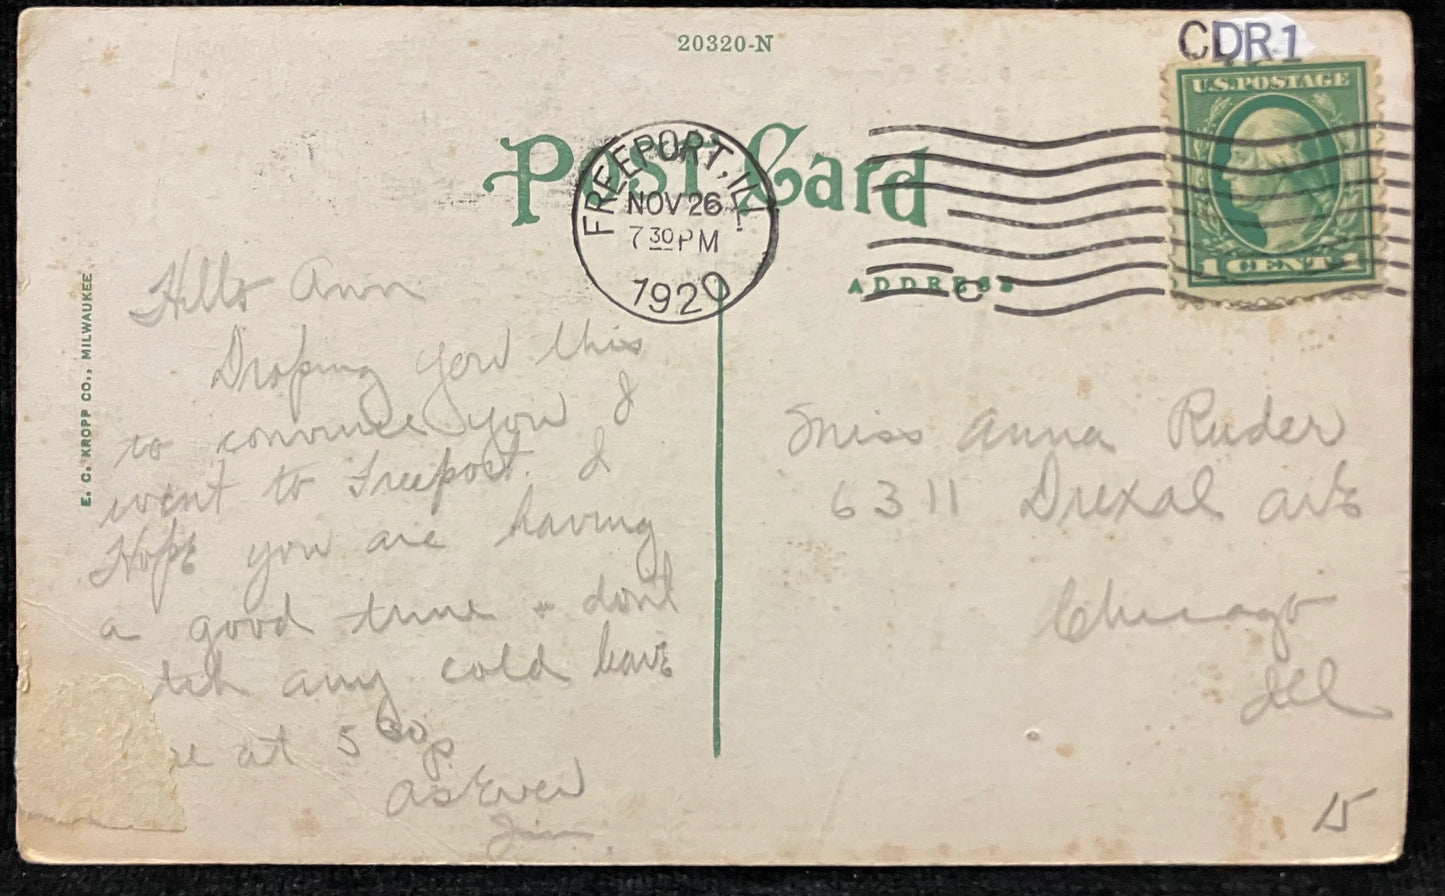 20320-N
CDR1
U.S.POSTAGE
1 CENT 1
Post Card
FREEPORT, ILL.
NOV 26
7 30 PM
1920
ADDRESS
E. C. KROPP CO., MILWAUKEE
Hello Ann
Droping you this
to convince you I
went to Freeport. I
Hope you are having
a good time + dont
tch any cold leave
re at 5 00 p.
As Ever
Jim
Miss Anna Ruder
6311 Drexal ave
Chicago
Ill
15